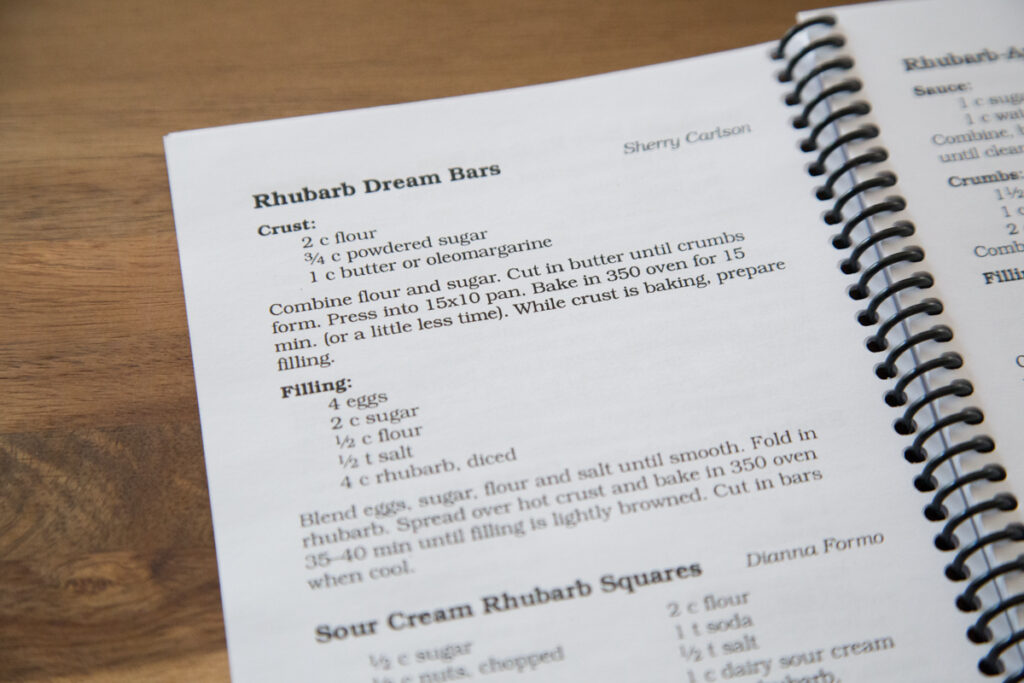 Sherry Carlson
Rhubarb Dream Bars
Crust:
2 c flour
¾ c powdered sugar
1 c butter or oleomargarine
Combine flour and sugar. Cut in butter until crumbs
form. Press into 15x10 pan. Bake in 350 oven for 15
min. (or a little less time). While crust is baking, prepare
filling.
Filling:
4 eggs
2 c sugar
½ c flour
½ t salt
4 c rhubarb, diced
Blend eggs, sugar, flour and salt until smooth. Fold in
rhubarb. Spread over hot crust and bake in 350 oven
35–40 min until filling is lightly browned. Cut in bars
when cool.
Dianna Formo
Sour Cream Rhubarb Squares
½ c sugar
c nuts, chopped
2 c flour
1 t soda
½ t salt
1 c dairy sour cream
rhubarb,
Sauce:
1 c
1 c
Combine,
until
Crumbs:
1½
1 c
2